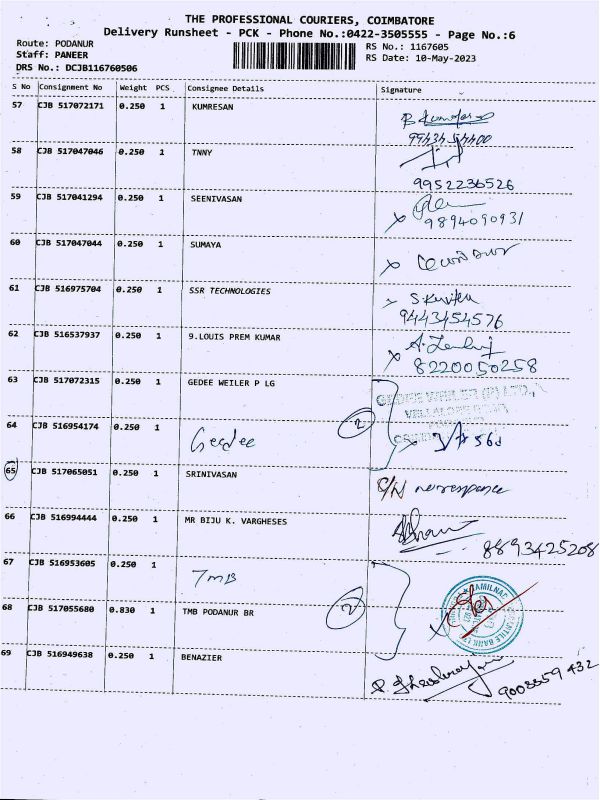 THE PROFESSIONAL COURIERS, COIMBATORE
Delivery Runsheet - PCK - Phone No.:0422-3505555 - Page No.:6
Route: PODANUR
Staff: PANEER
DRS No.: DCJB116760506
RS No.: 1167605
RS Date: 10-May-2023
S No Consignment No Weight PCS Consignee Details Signature
57 CJB 517072171 0.250 1 KUMRESAN
58 CJB 517047046 0.250 1 TNNY
9952236526
59 CJB 517041294 0.250 1 SEENIVASAN
9894090931
60 CJB 517047044 0.250 1 SUMAYA
61 CJB 516975704 0.250 1 SSR TECHNOLOGIES
9443454576
62 CJB 516537937 0.250 1 9.LOUIS PREM KUMAR
8220050258
63 CJB 517072315 0.250 1 GEDEE WEILER P LG
GEDEE WEILER (P) LTD.,
64 CJB 516954174 0.250 1 Geedee 2
65 CJB 517065051 0.250 1 SRINIVASAN
66 CJB 516994444 0.250 1 MR BIJU K. VARGHESES
8893425208
67 CJB 516953605 0.250 1 TMB
68 CJB 517055680 0.830 1 TMB PODANUR BR 2
69 CJB 516949638 0.250 1 BENAZIER
9003559432